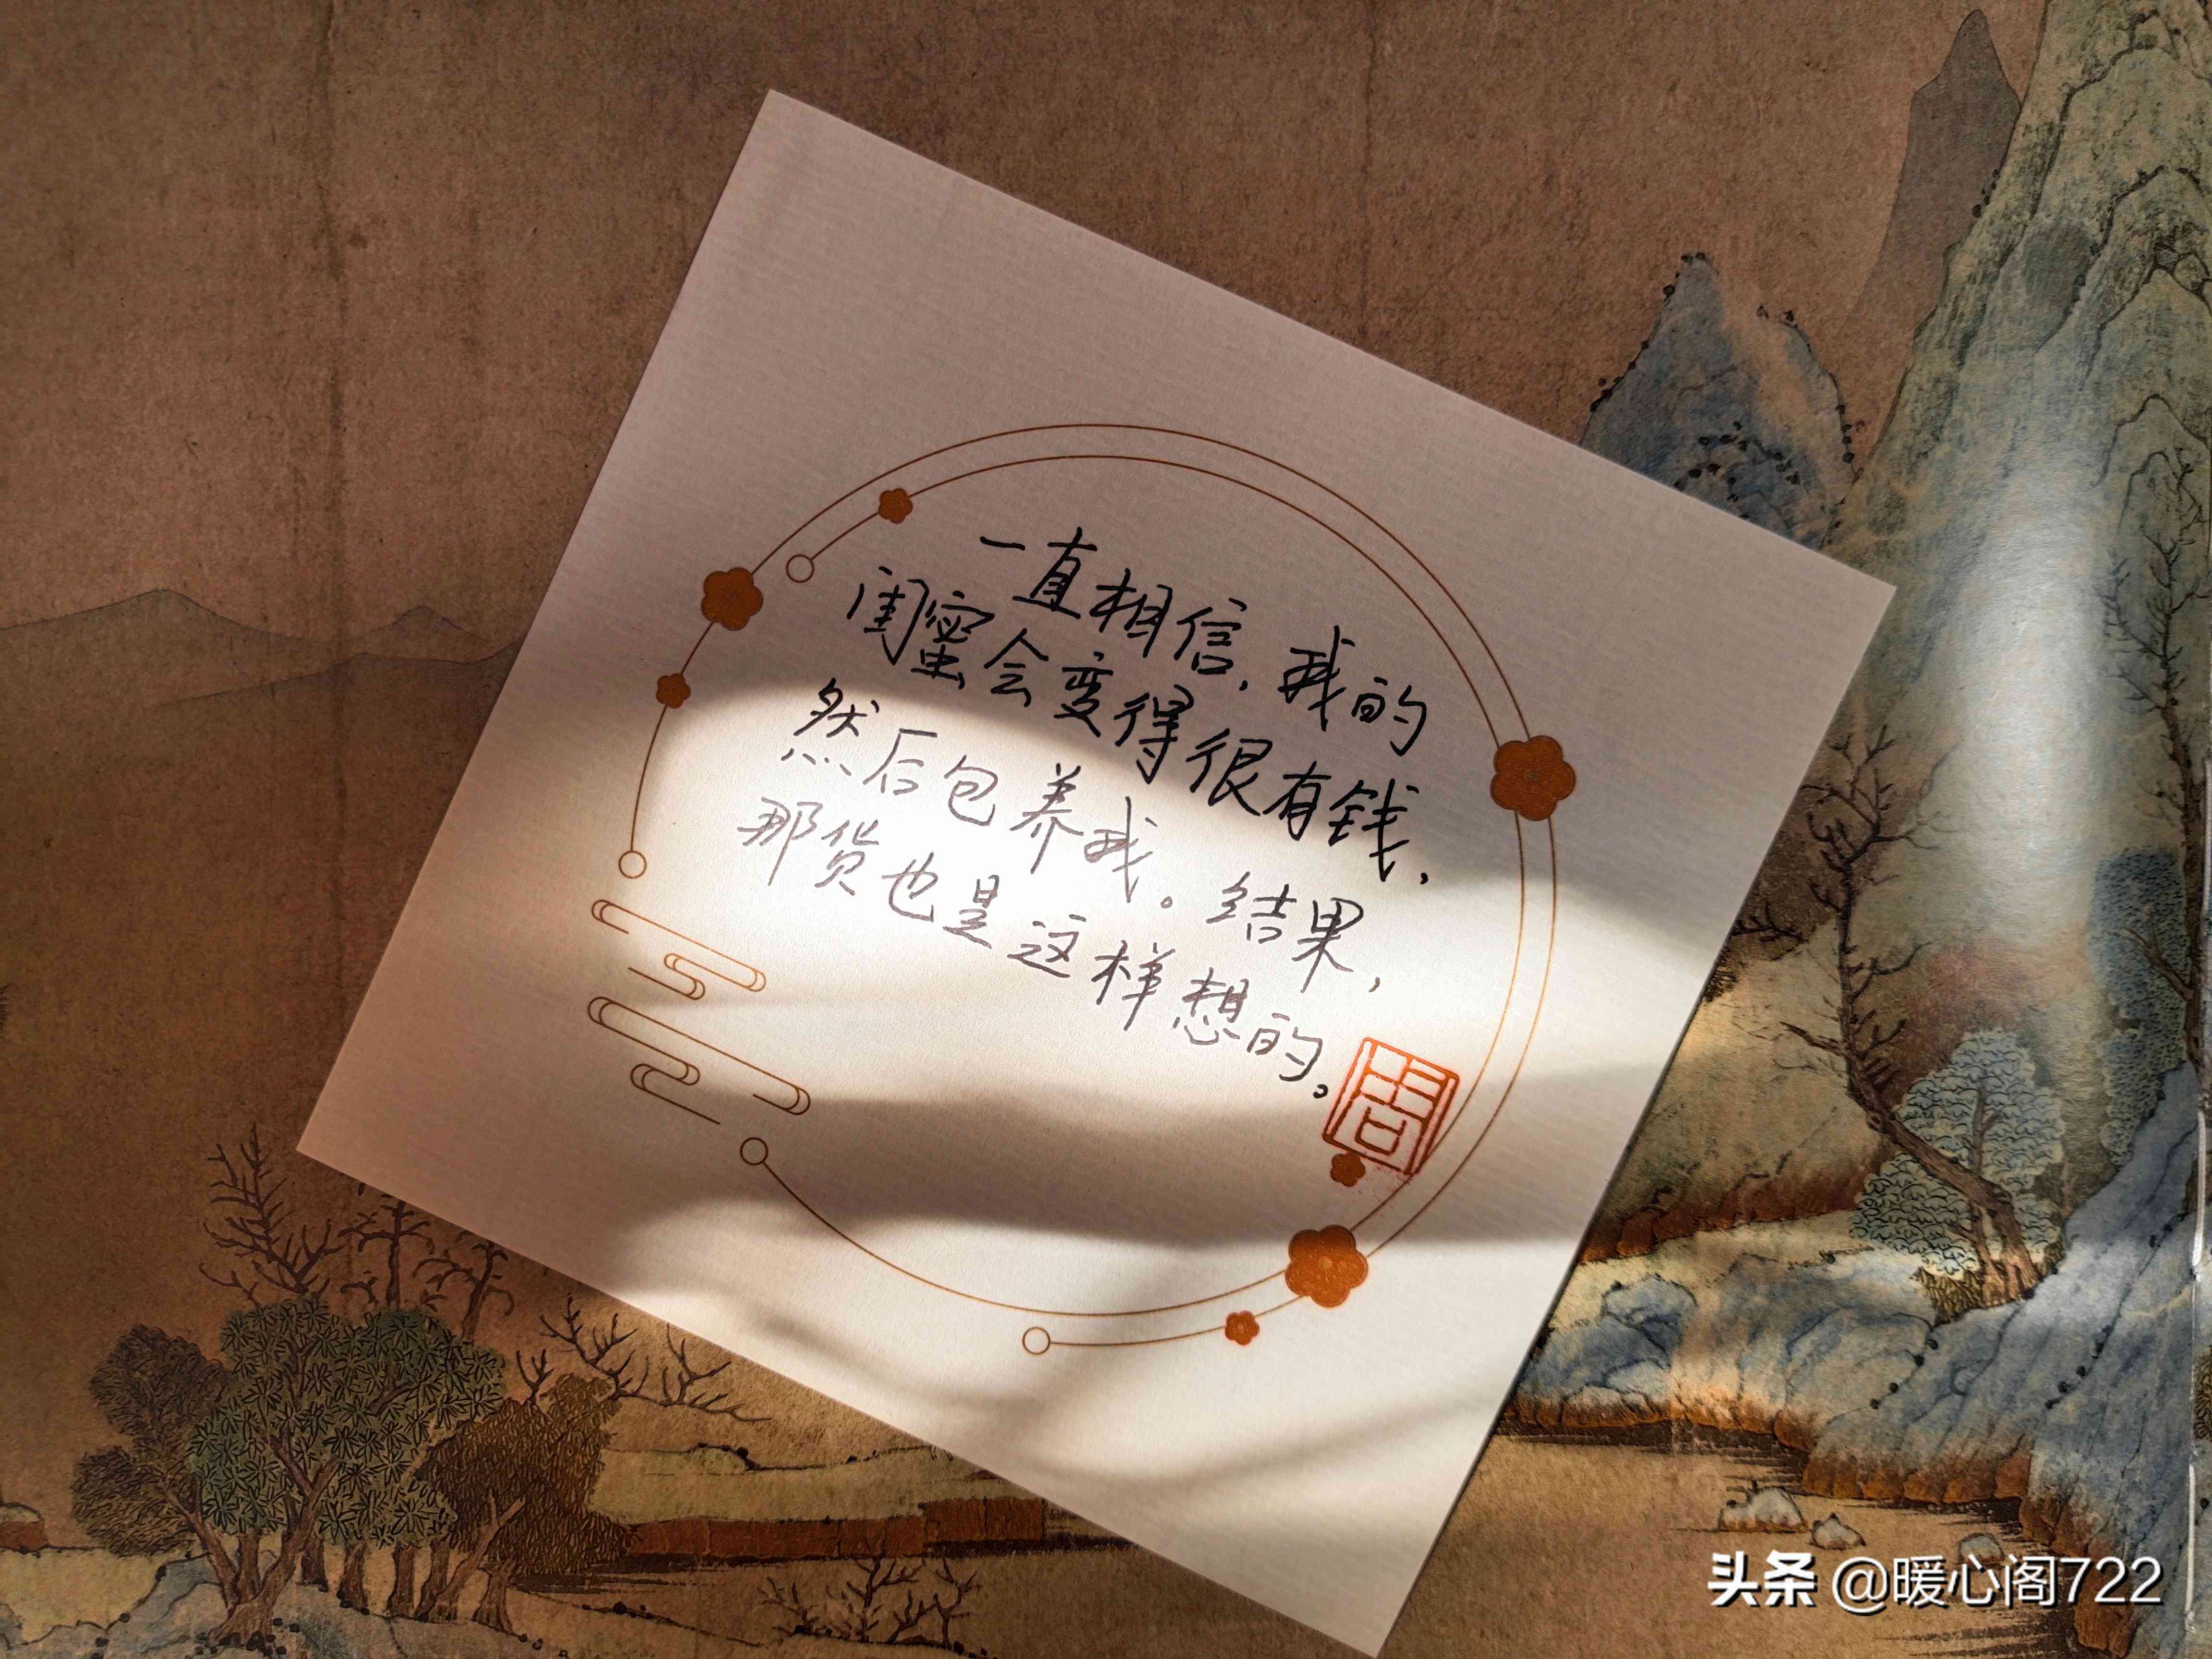 一直相信，我的
闺蜜会变得很有钱，
然后包养我。结果，
那货也是这样想的。
周
头条 @暖心阁722